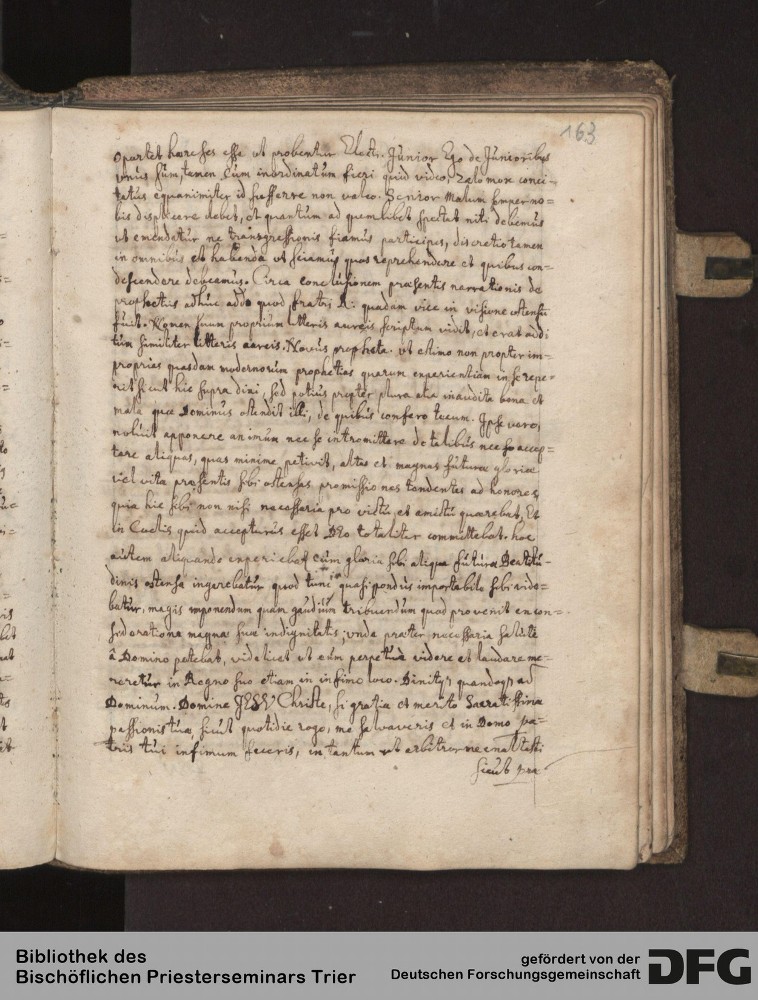 163
oportet haereses esse ut probentur Electi. Junior Ego de Junioribus
unus sum, tamen cum inordinatum fieri quid video, zelo more conci-
tatus equanimiter id sufferre non valeo. Senior Malum semper no=
bis displicere debet, et quantum ad quemlibet spectat niti debemus
ut emendetur ne transgressionis fiamus participes, discretio tamen
in omnibus est habenda ut sciamus quos reprehendere et quibus con=
descendere debeamus. Circa conclusionem presentis narrationis de
prophetiis adhuc addo quod fratri R: quadam vice in visione ostensum
fuit. Nomen suum proprium litteris aureis scriptum vidit, et erat addi
tum similiter litteris aureis. Novus propheta. ut estimo non propter im=
proprias quasdam modernorum prophetias quarum experientiam in se repe=
rit sicut hic supra dixi, sed potius propter plura alia inaudita bona et
mala quae Dominus ostendit illi, de quibus confero tecum. Ipse vero,
noluit apponere animum nec se intromittere de talibus nec so accep=
tare aliquas, quas minime petivit, altas et magnas futurae gloriae
vel vita praesentis sibi ostensas promissiones tendentes ad honores
quia hic sibi non nisi necessaria pro victu et amictu quaerebat, Et
in Caelis quid accepturus esset DEo totaliter committebat. hoc
autem aliquando experiebatur cum gloria sibi aliqua futura Beatitu-
dinis ostensa ingerebatur quod tunc quasi pondus importabile sibi vide=
batur, magis imponendum quam gaudium tribuendum quod provenit ex con=
sideratione magna suae indignitatis; unde praeter necessaria saluti
â Domino petebat, videlicet ut eum perpetuo videre et laudare me=
reretur in Regno suo etiam in infimo loco. Dixitque quandoque ad
Dominum. Domine JESU Christe, si gratia et merito Sacratissimae
passionis tuae, sicut quotidie rogo, me salvaveris et in Domo pa=
tris tui infimum feceris, in tantum ut arbitror me exaltasti
sicut prae
Bibliothek des
Bischöflichen Priesterseminars Trier
gefördert von der
Deutschen Forschungsgemeinschaft
DFG